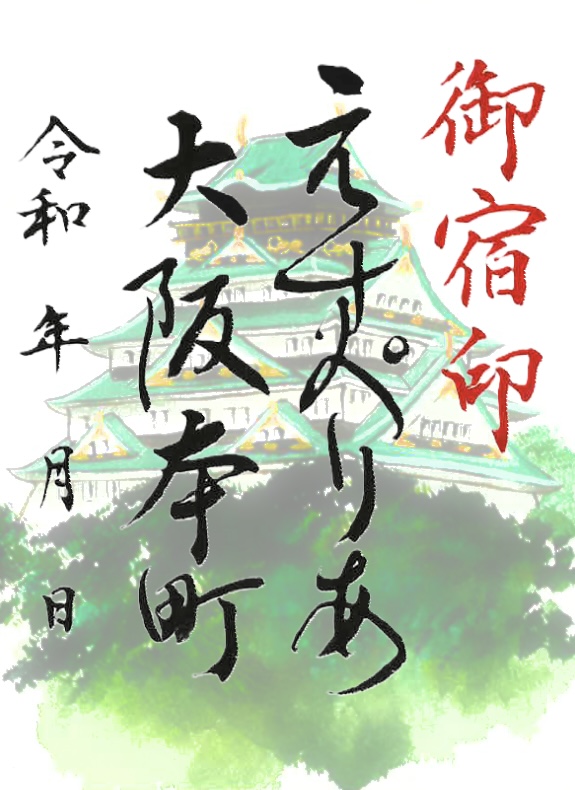 御宿印
えすぺりあ
大阪本町
令和 年 月 日